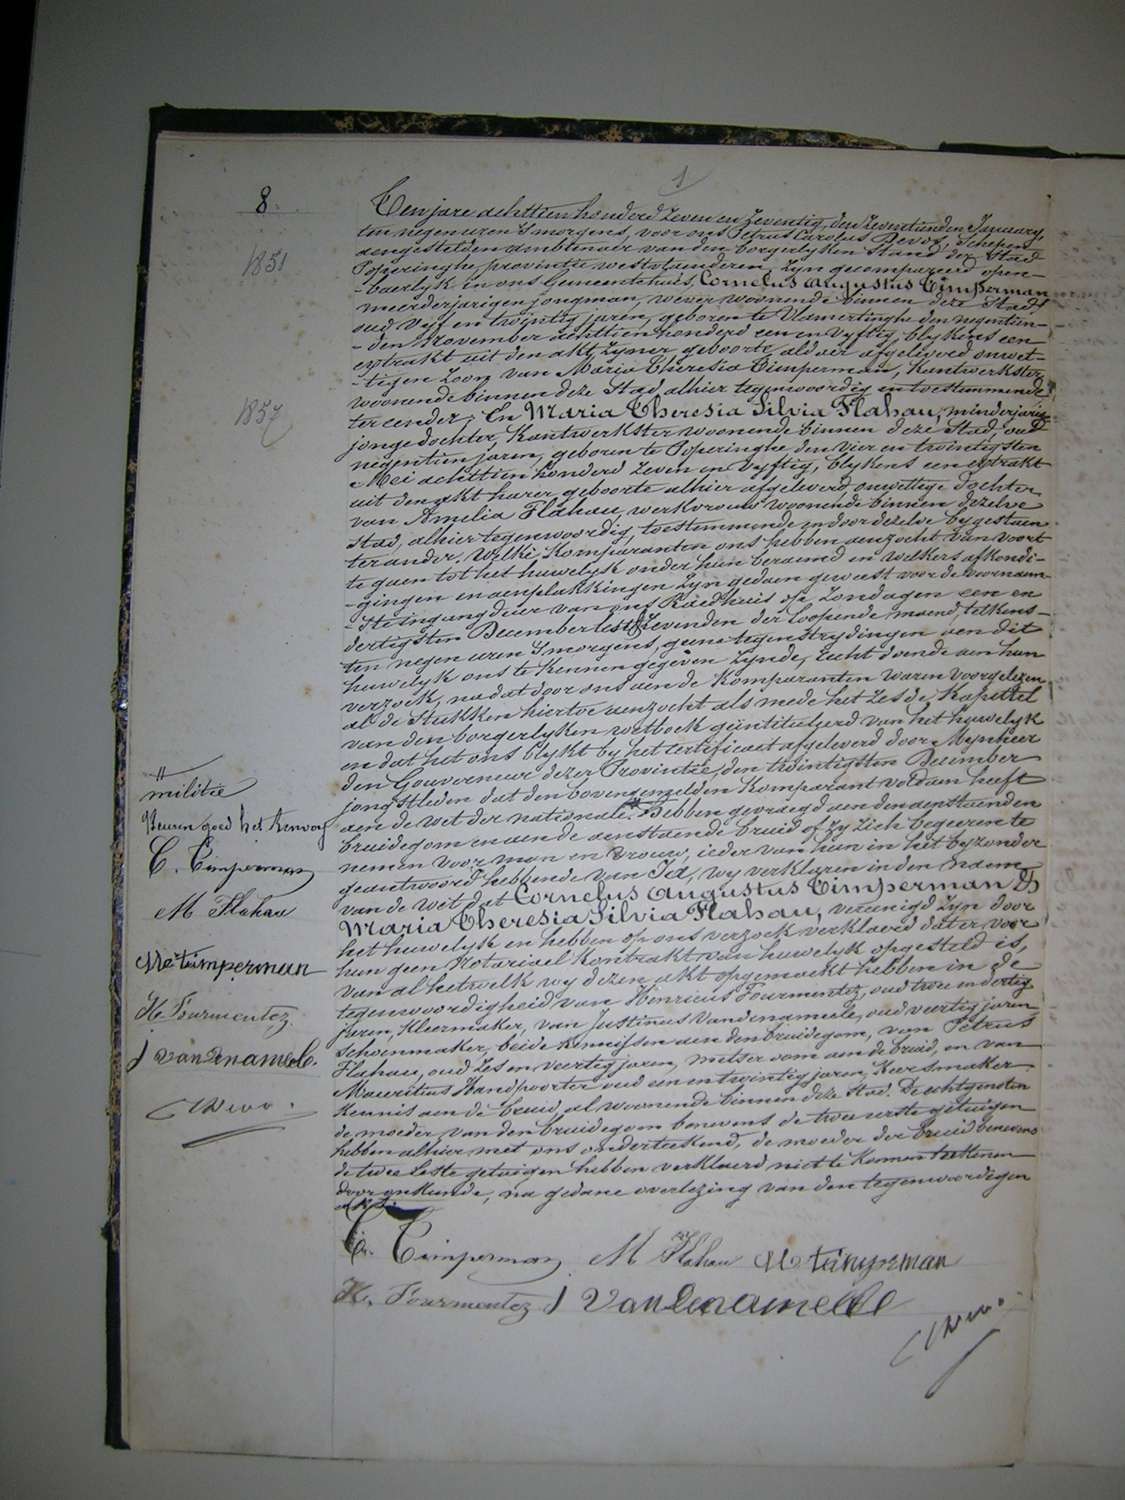 1
8.
1851
1857
Ten jare achttien honderd zeven en zeventig, den zeventienden January,
ten negen uren 's morgens, voor ons Petrus Carolus Devos, Schepen
aengestelden ambtenaer van den borgerlyken Stand der Stad
Poperinghe, provintie westvlaenderen, zyn gecompareerd open-
-baerlyk in ons Gemeentehuis, Cornelus Augustus Timperman
meerderjarigen jongman, wever woonende binnen deze Stad,
oud vyf en twintig jaren, geboren te Vlamertinghe den negentien-
-den November achttien honderd een en vyftig, blykens een
extrakt uit den akt zyner geboorte aldaer afgeleverd onwet-
-tigen zoon van Maria Theresia Timperman, Kantwerkster,
woonende binnen deze Stad, alhier tegenwoordig en toestemmende
ter eender; En Maria Theresia Silvia Flahau, minderjarige
jonge dochter, Kantwerkster woonende binnen deze Stad, oud
negentien jaren, geboren te Poperinghe den vier en twintigsten
Mei achttien honderd zeven en vyftig, blykens een extrakt
uit den akt harer geboorte alhier afgeleverd onwettige dochter
van Amelia Flahau, werkvrouw woonende binnen dezelve
Stad, alhier tegenwoordig, toestemmende en door dezelve bygestaen
ter ander. Welke Komparanten ons hebben aenzocht van voort
te gaen tot het huwelyk onder hun beraemd en welkers afkondi-
-gingen en aenplakkingen zyn gedaen geweest voor de voornaem-
-ste ingangdeur van ons Raedhuis op zondagen een en
dertigsten December lest & zevenden der loopende maend, telkens
ten negen uren 's morgens, geene tegenstrydingen aen dit
huwelyk ons te kennen gegeven zynde, recht doende aen hun
verzoek, na dat door ons aen de Komparanten waren voorgelezen
al de stukken hiertoe aenzocht als mede het zesde Kapittel
van den borgerlyken wetboek geïntituleerd van het huwelyk
en dat het ons blykt by het certificaet afgeleverd door Mynheer
den Gouverneur dezer Provintie, den twintigsten December
jongstleden dat den bovengemelden Komparant voldaen heeft
aen de wet der nationale # Hebben gevraegd aen den aenstaenden
bruidegom en aen de aenstaende bruid of zy zich begeeren te
nemen voor man en vrouw, ieder van hun in het byzonder
geantwoord hebbende van Ja, wy verklaren in den naem
van de wet dat Cornelus Augustus Timperman &
Maria Theresia Silvia Flahau, vereenigd zyn door
het huwelyk en hebben op ons verzoek verklaerd dat er voor
hun geen Notariael Kontrakt van huwelyk opgesteld is,
van al hetwelk wy dezen akt opgemaekt hebben in de
tegenwoordigheid van Henricus Fourmentez, oud twee en dertig
jaren, Kleermaker, van Justinus Vandenameele, oud veertig jaren
schoenmaker, beide Kennissen aen den bruidegom, van Petrus
Flahau, oud zes en veertig jaren, metser oom aen de bruid, en van
Mauritius Handpoorter oud een en twintig jaren, Keersmaker
Kennis aen de bruid, al woonende binnen deze Stad. De echtgenoten
de moeder van den bruidegom benevens de twee eerste getuigen
hebben alhier met ons onderteekend, de moeder der bruid benevens
de twee leste getuigen hebben verklaerd niet te konnen teekenen
door onkunde, na gedane overlezing van den tegenwoordigen
akt.
C. Timperman M Flahau M timperman
H. Fourmentez J Vandenameele
CDevos.
#
militie
Keuren goed het Renvoy
C. Timperman
M Flahau
M timperman
H. Fourmentez.
J vandenameele.
CDevos.